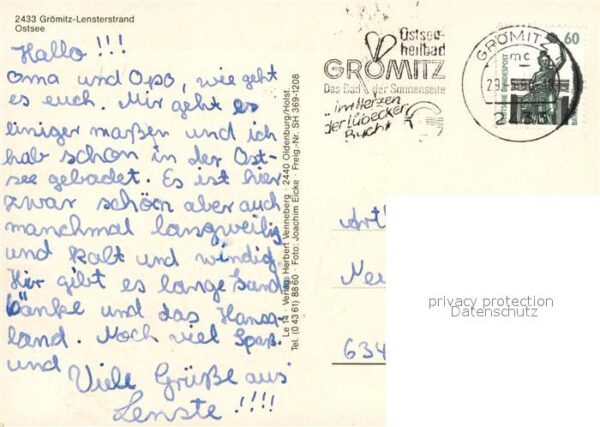 2433 Grömitz-Lensterstrand
Ostsee
Hallo !!!
oma und Opo, wie geht
es euch. Mir geht es
einiger maßen und ich
hab schon in der Ost-
see gebadet. Es ist hier
zwar schön aber auch
manchmal langweilig
und kalt und windig
Hir gibt es lange Sand
bänke und das Hansa-
land. Noch viel Spaß.
und
Viele Grüße aus
Lenste !!!!
Le 14 · Verlag Herbert Venneberg · 2440 Oldenburg/Holst.
Tel. (04361) 8860 · Foto: Joachim Eicke · Freig.-Nr. SH 369-1208
Ostsee-
heilbad
GRÖMITZ
Das Bad der Sonnenseite
im Herzen
der Lübecker
Bucht
GRÖMITZ 1
mc
60
DEUTSCHE BUNDESPOST
634
privacy protection
Datenschutz